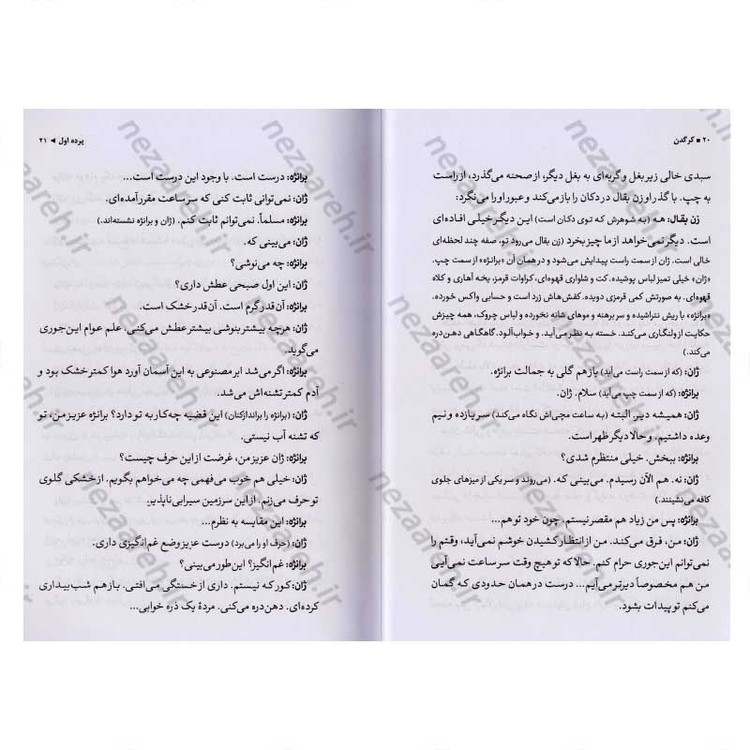 ۲۰ ■ کرگدن
سبدی خالی زیر بغل و گربه‌ای به بغل دیگر، از صحنه می‌گذرد، از راست
به چپ. با گذار او زن بقال در دکان را باز می‌کند و عبور او را می‌نگرد:
زن بقال: هه (به شوهرش که توی دکان است) این دیگر خیلی افاده‌ای
است. دیگر نمی‌خواهد از ما چیز بخرد (زن بقال می‌رود تو، صفه چند لحظه‌ای
خالی است. ژان از سمت راست پیدایش می‌شود و در همان آن «برانژه» از سمت چپ.
«ژان» خیلی تمیز لباس پوشیده. کت و شلواری قهوه‌ای، کراوات قرمز، یخه آهاری و کلاه
قهوه‌ای. به صورتش کمی قرمزی دویده. کفش‌هاش زرد است و حسابی واکس خورده.
«برانژه» با ریش نتراشیده و سر برهنه و موهای شانه نخورده و لباس چروک، همه چیزش
حکایت از ولنگاری می‌کند. خسته به نظر می‌آید. و خواب‌آلود. گاهگاهی دهن‌دره
می‌کند.)
ژان: (که از سمت راست می‌آید) باز هم گلی به جمالت برانژه.
برانژه: (که از سمت چپ می‌آید) سلام. ژان.
ژان: همیشه دیر. البته (به ساعت مچی‌اش نگاه می‌کند) سر یازده و نیم
وعده داشتیم. و حالا دیگر ظهر است.
برانژه: ببخش. خیلی منتظرم شدی؟
ژان: نه. هم الآن رسیدم. می‌بینی که. (می‌روند و سر یکی از میزهای جلوی
کافه می‌نشینند.)
برانژه: پس من زیاد هم مقصر نیستم. چون خود تو هم...
ژان: من، فرق می‌کند. من از انتظار کشیدن خوشم نمی‌آید، وقتم را
نمی‌توانم این‌جوری حرام کنم. حالا که تو هیچ وقت سر ساعت نمی‌آیی
من هم مخصوصاً دیرتر می‌آیم... درست در همان حدودی که گمان
می‌کنم تو پیدات بشود.
پرده اول ◄ ۲۱
برانژه: درست است. با وجود این درست است...
ژان: نمی‌توانی ثابت کنی که سر ساعت مقرر آمده‌ای.
برانژه: مسلماً. نمی‌توانم ثابت کنم. (ژان و برانژه نشسته‌اند.)
ژان: می‌بینی که.
برانژه: چه می‌نوشی؟
ژان: این اول صبحی عطش داری؟
برانژه: آن‌قدر گرم است. آن‌قدر خشک است.
ژان: هرچه بیشتر بنوشی بیشتر عطش می‌کنی، علم عوام این‌جوری
می‌گوید.
برانژه: اگر می‌شد ابر مصنوعی به این آسمان آورد هوا کمتر خشک بود و
آدم کمتر تشنه‌اش می‌شد.
ژان: (برانژه را براندازکنان) این قضیه چه‌کار به تو دارد؟ برانژه عزیز من، تو
که تشنه آب نیستی.
برانژه: ژان عزیز من، غرضت از این حرف چیست؟
ژان: خیلی هم خوب می‌فهمی چه می‌خواهم بگویم. از خشکی گلوی
تو حرف می‌زنم. از این سرزمین سیرابی‌ناپذیر.
برانژه: این مقایسه به نظرم...
ژان: (حرف او را می‌برد) درست عزیز وضع غم‌انگیزی داری.
برانژه: غم‌انگیز؟ این‌طور می‌بینی؟
ژان: کور که نیستم. داری از خستگی می‌افتی. باز هم شب‌بیداری
کرده‌ای. دهن‌دره می‌کنی. مردهٔ یک ذره خوابی...
nezaareh.ir
nezaareh.ir
nezaareh.ir
nezaareh.ir
nezaareh.ir
nezaareh.ir